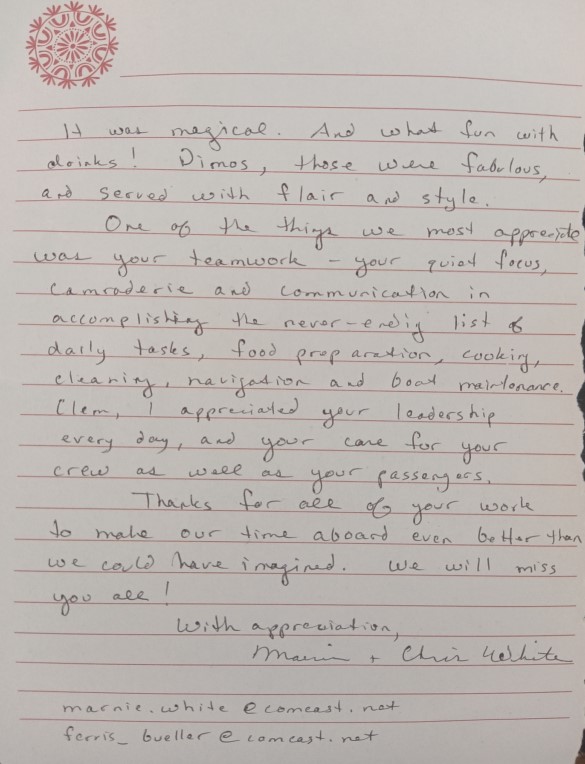 It was magical. And what fun with
drinks! Dimos, those were fabulous,
and served with flair and style.
One of the things we most appreciate
was your teamwork – your quiet focus,
camraderie and communication in
accomplishing the never-ending list of
daily tasks, food preparation, cooking,
cleaning, navigation and boat maintenance.
Clem, I appreciated your leadership
every day, and your care for your
crew as well as your passengers.
Thanks for all of your work
to make our time aboard even better than
we could have imagined. We will miss
you all!
With appreciation,
Marnie + Chris White
marnie.white@comcast.net
ferris_bueller@comcast.net